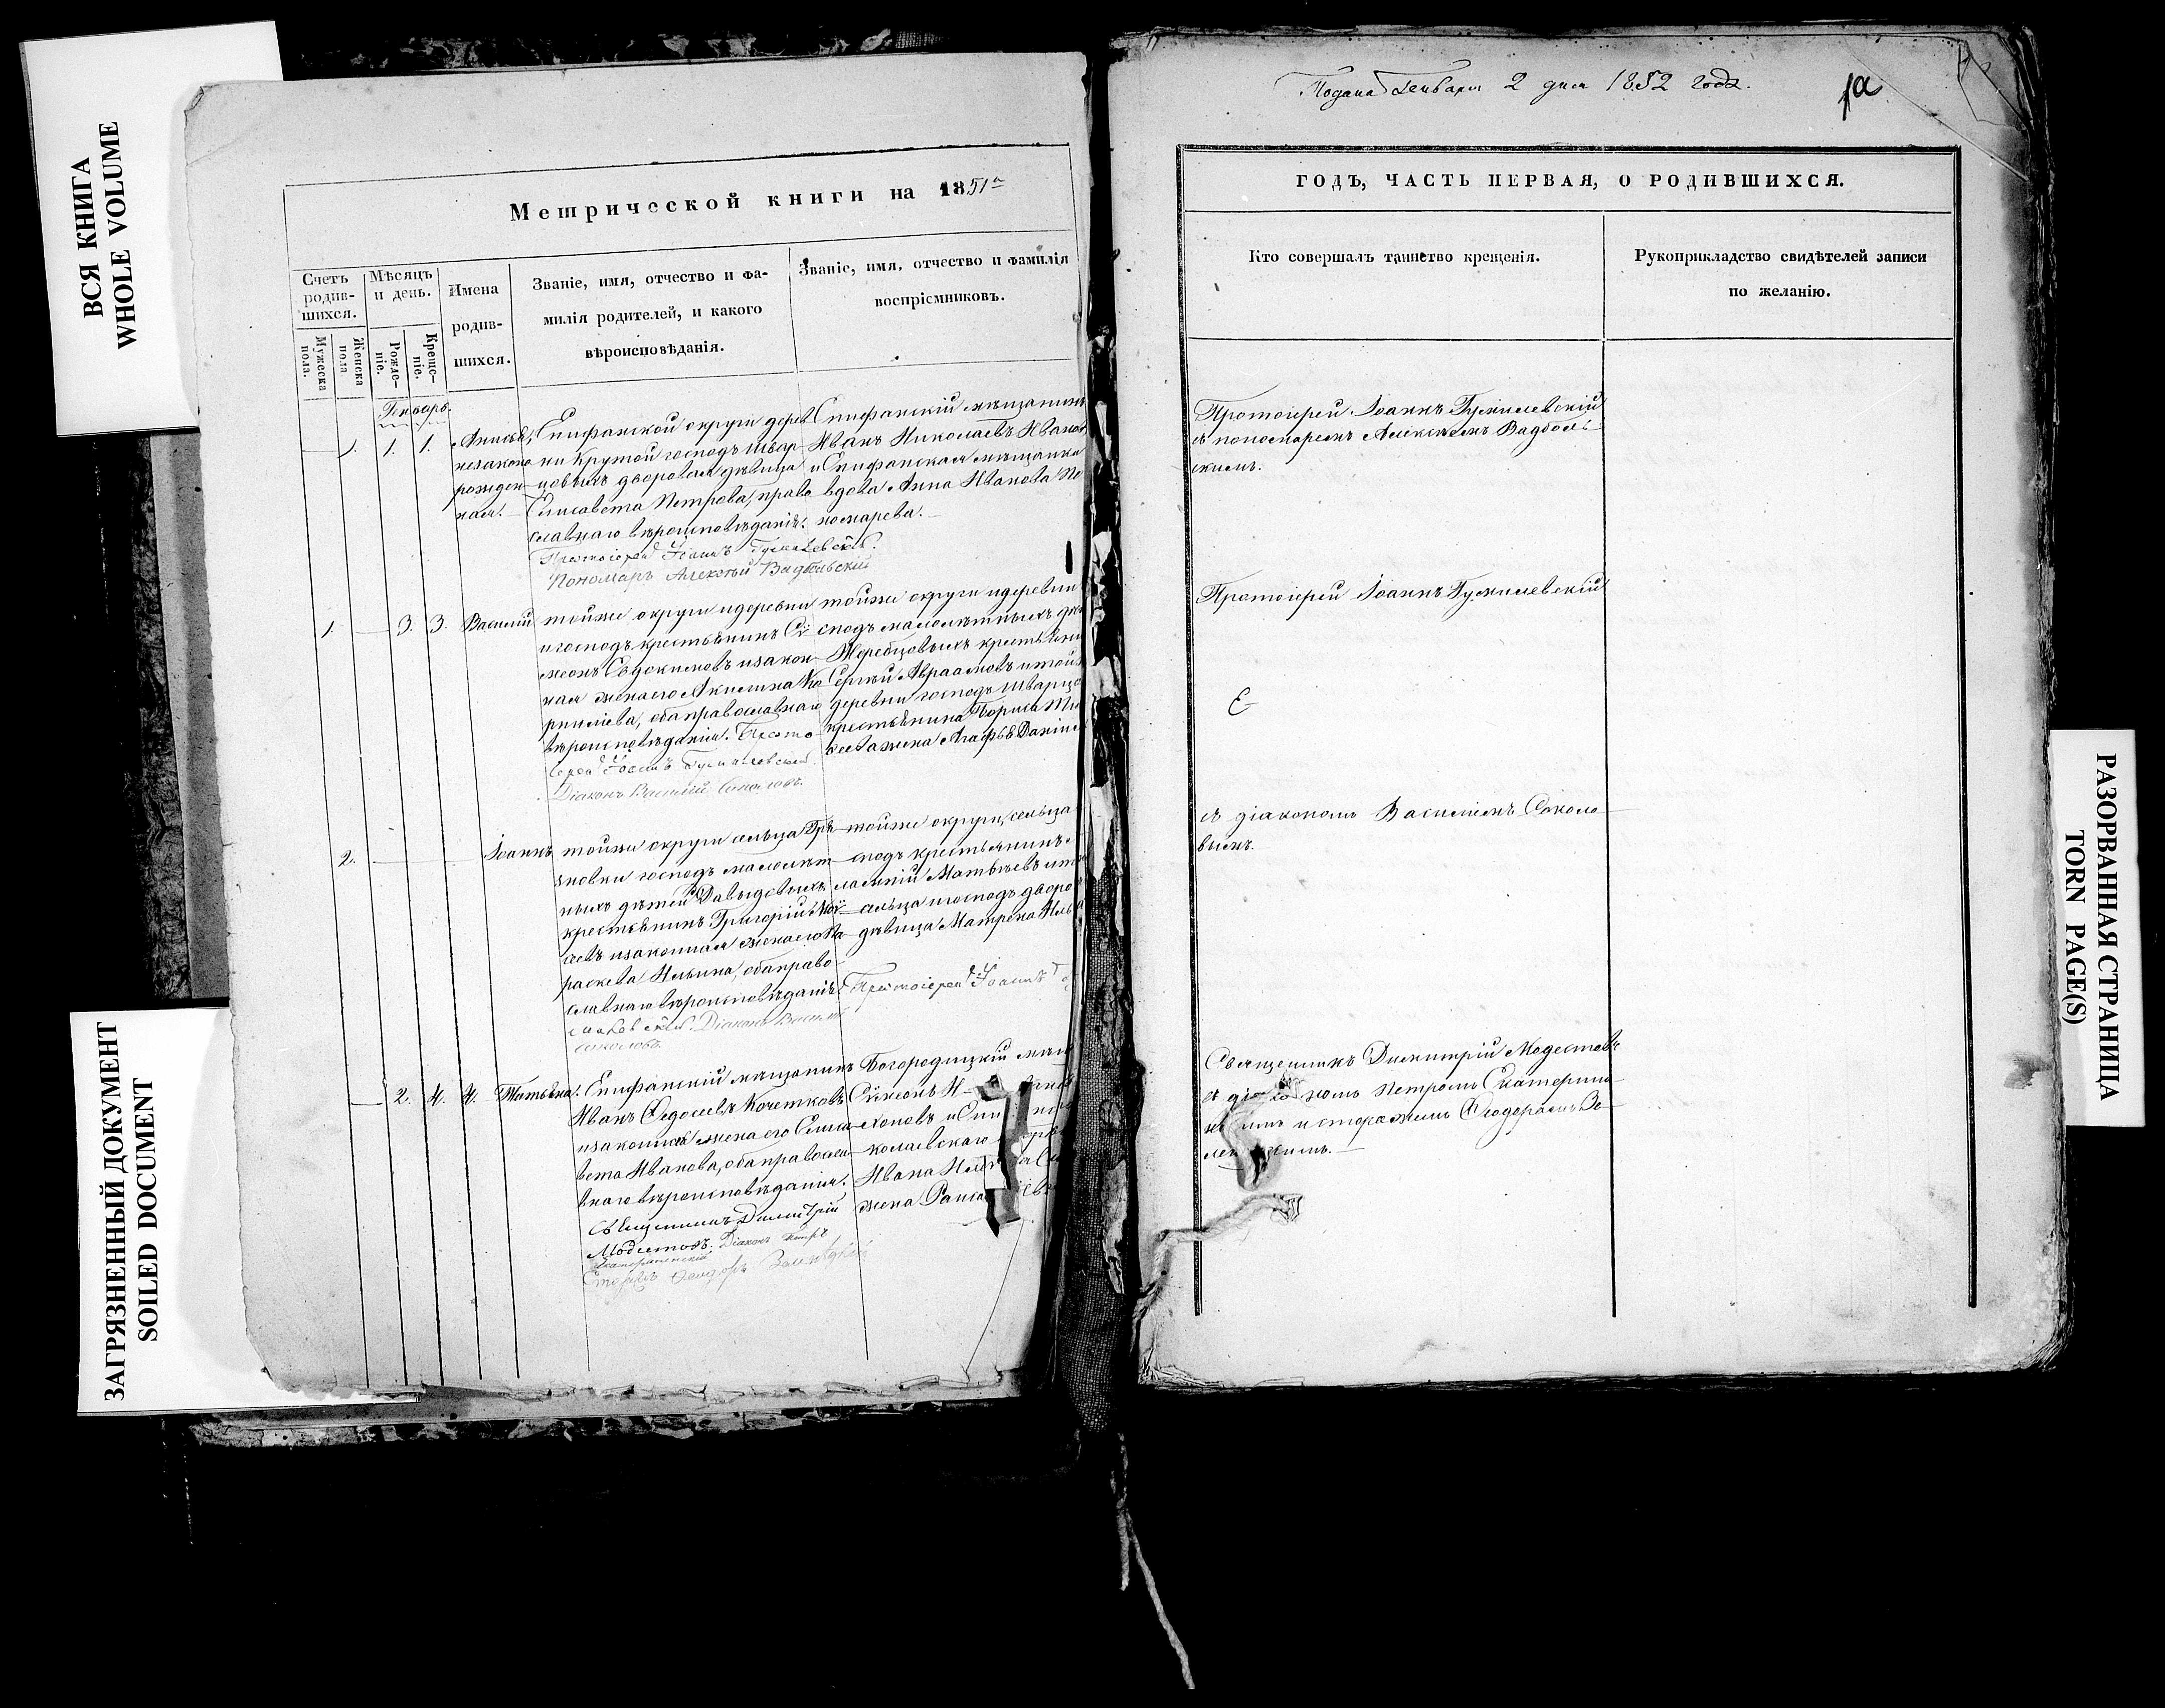 ВСЯ КНИГА
WHOLE VOLUME
ЗАГРЯЗНЕННЫЙ ДОКУМЕНТ
SOILED DOCUMENT
Метрической книги на 1851й
Счетъ родив-шихся.
Мужеска пола.
Женска пола
Мѣсяцъ и день.
Рожде-ніе.
Креще-ніе.
Имена
родив-
шихся.
Званіе, имя, отчество и фа-
милія родителей, и какого
вѣроисповѣданія.
Званіе, имя, отчество и фамилія
воспріемниковъ.
Генварь.
1. 1. 1.
незаконо
рожден
ная.
Епифанской округи дерев
ни Крутой господъ Швар
цовыхъ дворовая дѣвица
Елисавета Петрова, право
славнаго вѣроисповѣданія.
Протоіерей Іоаннъ Гумилевскій.
Пономарь Алексѣй Вадбольскій
Епифанскій мѣщанинъ
Иванъ Николаевъ Иванов
и Епифанская мѣщанка
вдова Анна Иванова По
номарева.
1. 3. 3. Василій
тойже округи и деревни
и господъ крестьянинъ Сѵ
меонъ Евдокимовъ и закон
ная жена его Акилина Ко
рнилiева, оба православнаго
вѣроисповѣданія. Прото
іерей Іоаннъ Гумилевскій.
Діаконъ Василій Соколовъ.
тойже округи и деревни
сподъ малолѣтныхъ дѣ
Жеребцовыхъ крестьянин
Сергѣй Авраамовъ и той
деревни господъ Шварцо
крестьянина Бориса Ти
ѳеева жена Агафья Даніил
2. Іоаннъ
тойже округи сельца Грѣ
зновки господъ малолѣт
ныхъ дѣтей Давыдовыхъ
крестьянинъ Григорій Мои
сеевъ и законная жена его Па
раскева Ильина, оба право
славнаго вѣроисповѣданія.
милевскій. Діаконъ Василій
Соколовъ.
тойже округи, сельца
сподъ крестьянинъ
Матвѣевъ и т
сельца и господъ дворо
дѣвица Матрена Иль
Протоіерей Іоаннъ Гу
2. 4. 4. Татьяна.
Епифанскій мѣщанинъ
Иванъ Ѳедосеевъ Кочетковъ
и законная жена его Елиса
вета Иванова, оба правосла
внаго вѣроисповѣданія.
Священникъ Димитрій
Модестовъ. Діаконъ Петръ
Екатерининскій
Богородицкій мѣщ
Сѵмеонъ
колаевскаго
Ивана
жена
Подана Генваря 2 дня 1852 года.
1а
ГОДЪ, ЧАСТЬ ПЕРВАЯ, О РОДИВШИХСЯ.
Кто совершалъ таинство крещенія.
Рукоприкладство свидѣтелей записи
по желанію.
Протоіерей Іоаннъ Гумилевскій
съ пономаремъ Алексѣемъ Вадболь
скимъ.
Протоіерей Іоаннъ Гумилевскій
съ діакономъ Василіемъ Соколо
вымъ.
Священникъ Димитрій Модестовъ
Петромъ Екатерини
РАЗОРВАННАЯ СТРАНИЦА
TORN PAGE(S)